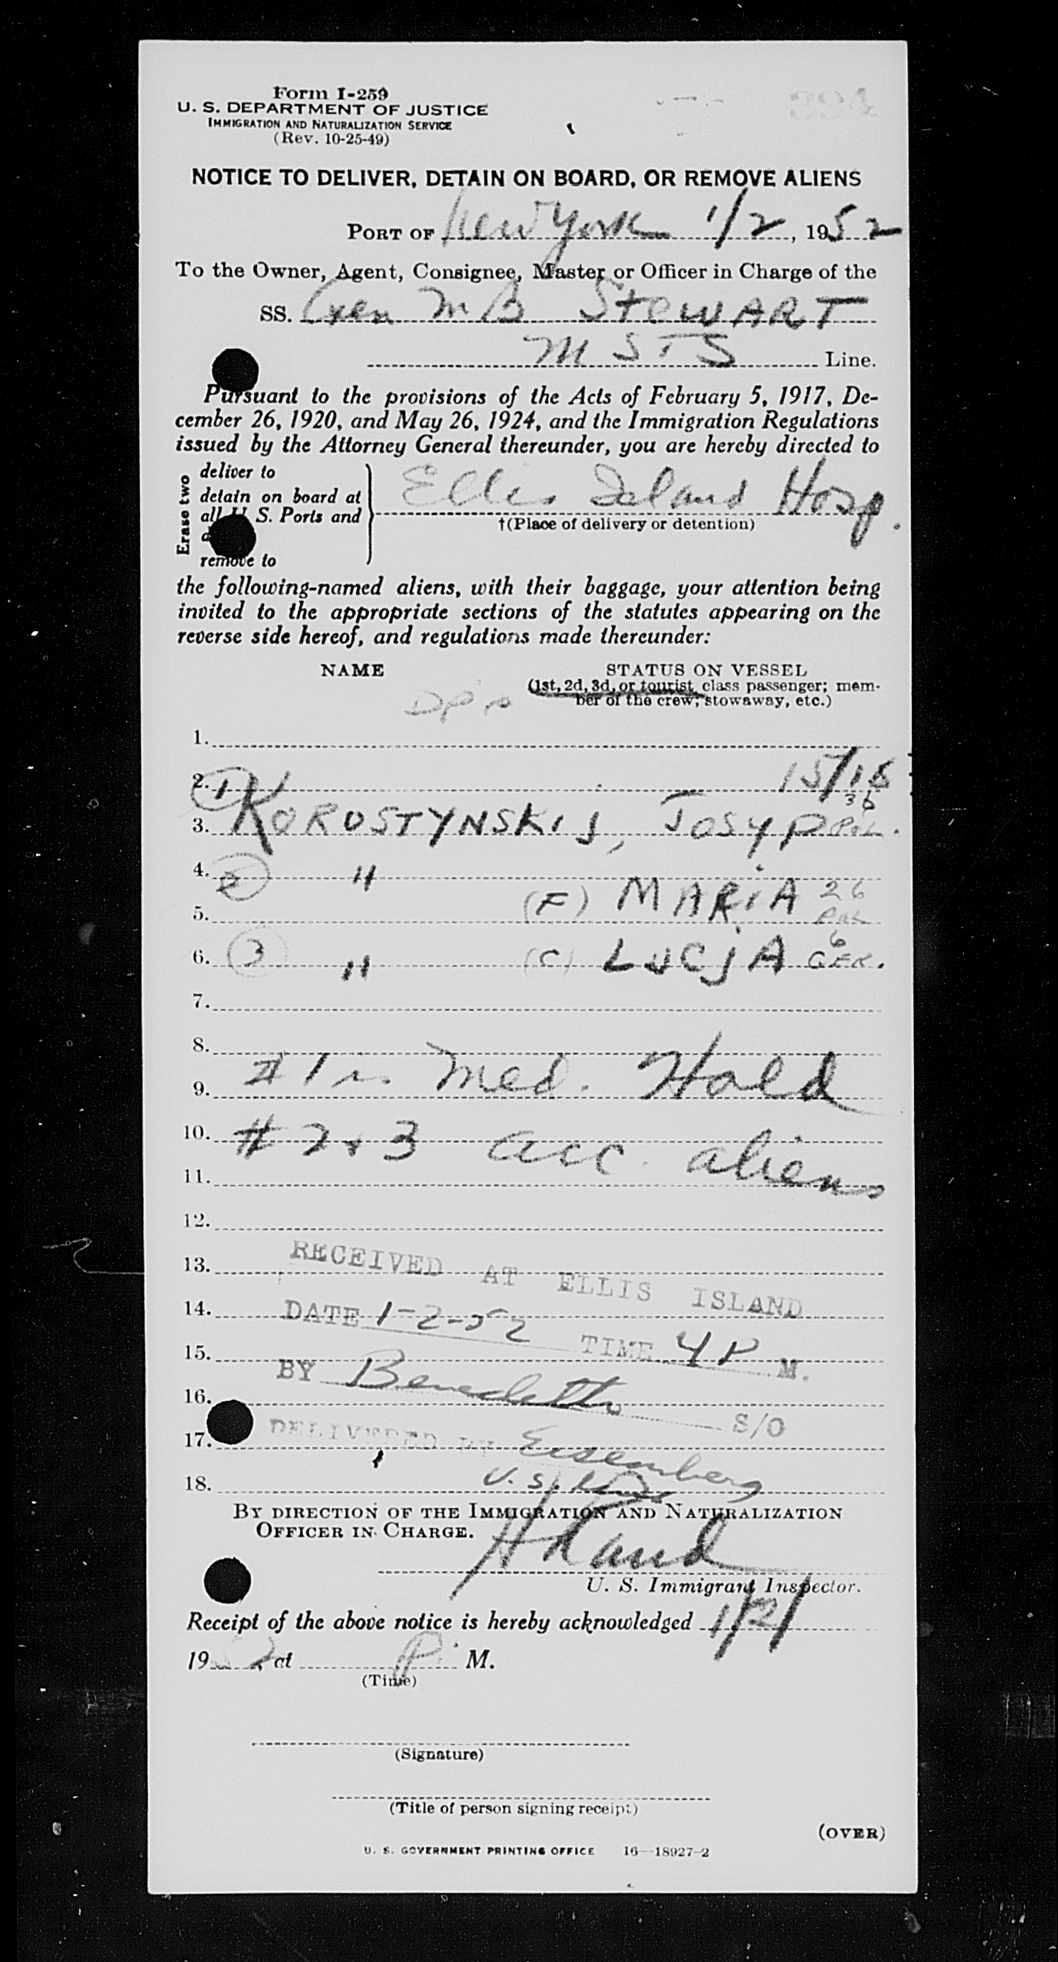 Form I-259
U. S. DEPARTMENT OF JUSTICE
IMMIGRATION AND NATURALIZATION SERVICE
(Rev. 10-25-49)
NOTICE TO DELIVER, DETAIN ON BOARD, OR REMOVE ALIENS
PORT OF New York 1/2, 1952
To the Owner, Agent, Consignee, Master or Officer in Charge of the
SS. Gen M B STEWART
MSTS Line.
Pursuant to the provisions of the Acts of February 5, 1917, De-
cember 26, 1920, and May 26, 1924, and the Immigration Regulations
issued by the Attorney General thereunder, you are hereby directed to
Erase two
deliver to
detain on board at
all U. S. Ports and
remove to
Ellis Island Hosp.
†(Place of delivery or detention)
the following-named aliens, with their baggage, your attention being
invited to the appropriate sections of the statutes appearing on the
reverse side hereof, and regulations made thereunder:
NAME STATUS ON VESSEL
(1st, 2d, 3d, or tourist class passenger; mem-
ber of the crew; stowaway, etc.)
DP's
1.
2. 1 15/18
36
3. KOROSTYNSKIJ, JOSYP POL.
4. 2 " (F) MARIA 26
5. POL
6. 3 " (C) LUCJA 6 GER.
7.
8.
9. #1 is Med. Hold
10. #2 & 3 acc. aliens
11.
12.
13. RECEIVED AT ELLIS ISLAND
14. DATE 1-2-52 TIME 4 P M.
15.
BY Benedetto S/O
16.
17. DELIVERED BY Eisenberg
18. U. S.
BY DIRECTION OF THE IMMIGRATION AND NATURALIZATION
OFFICER IN CHARGE.
H Rand
U. S. Immigrant Inspector.
Receipt of the above notice is hereby acknowledged 1/2/
1952 at P. M.
(Time)
(Signature)
(Title of person signing receipt)
(OVER)
U. S. GOVERNMENT PRINTING OFFICE 16—18927-2